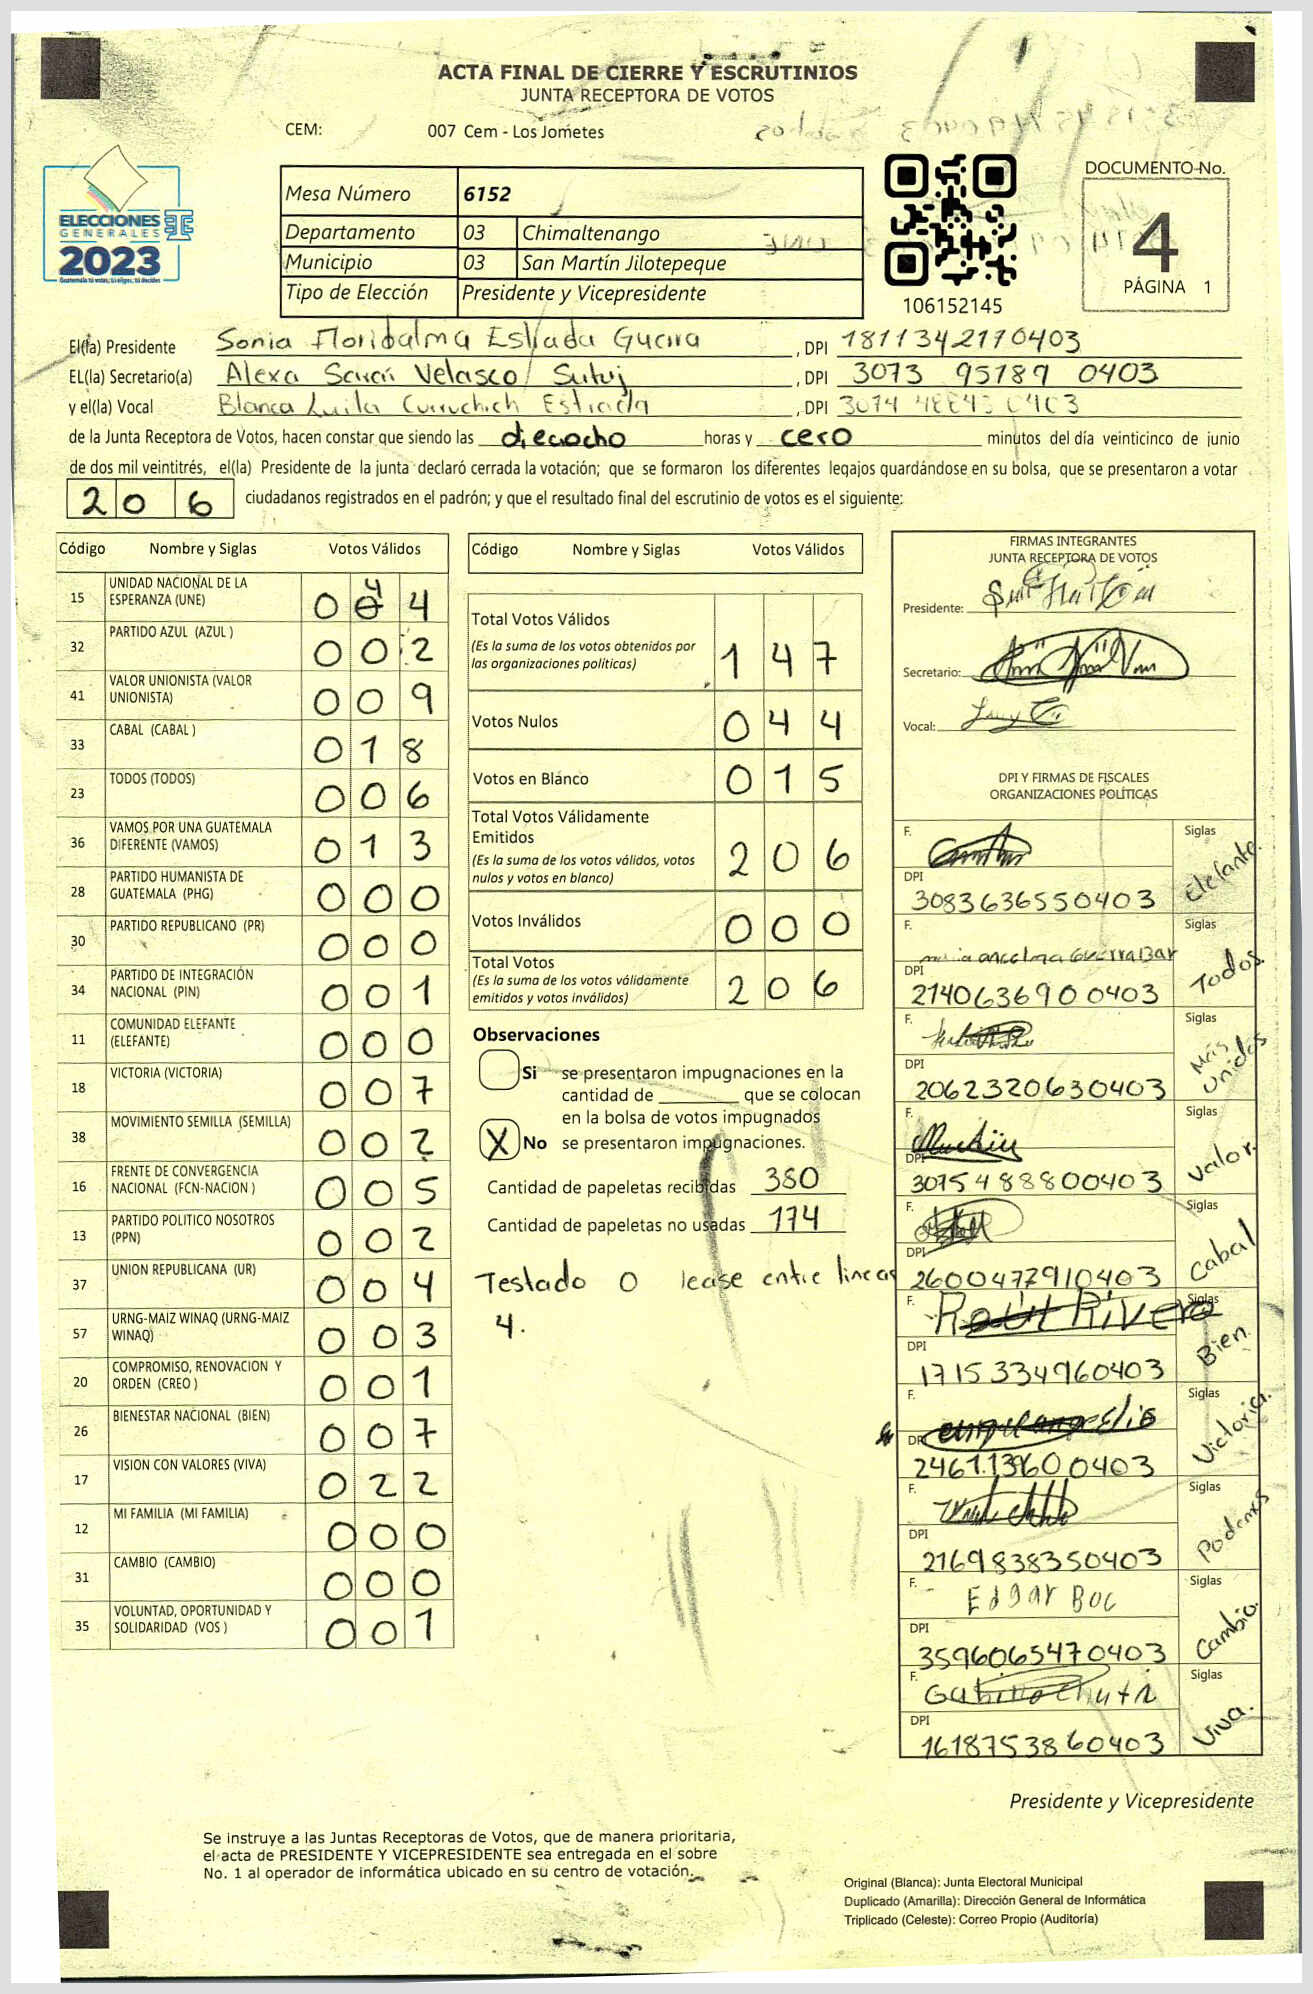 ACTA FINAL DE CIERRE Y ESCRUTINIOS
JUNTA RECEPTORA DE VOTOS
CEM: 007 Cem - Los Jometes
ELECCIONES
GENERALES
2023
Guatemala tú votas, tú eliges, tú decides
Mesa Número 6152
Departamento 03 Chimaltenango
Municipio 03 San Martín Jilotepeque
Tipo de Elección Presidente y Vicepresidente
106152145
DOCUMENTO No.
4
PÁGINA 1
El(la) Presidente Sonia Floridalma Estrada Guerra, DPI 1811342170403
EL(la) Secretario(a) Alexa Saraí Velasco Sutuj, DPI 3073 95189 0403
y el(la) Vocal Blanca Curruchich Estrada, DPI
de la Junta Receptora de Votos, hacen constar que siendo las dieciocho horas y cero minutos del día veinticinco de junio
de dos mil veintitrés, el(la) Presidente de la junta declaró cerrada la votación; que se formaron los diferentes legajos guardándose en su bolsa, que se presentaron a votar
206 ciudadanos registrados en el padrón; y que el resultado final del escrutinio de votos es el siguiente:
Código Nombre y Siglas Votos Válidos
15 UNIDAD NACIONAL DE LA ESPERANZA (UNE) 0 0 4 4
32 PARTIDO AZUL (AZUL ) 0 0 2
41 VALOR UNIONISTA (VALOR UNIONISTA) 0 0 9
33 CABAL (CABAL ) 0 1 8
23 TODOS (TODOS) 0 0 6
36 VAMOS POR UNA GUATEMALA DIFERENTE (VAMOS) 0 1 3
28 PARTIDO HUMANISTA DE GUATEMALA (PHG) 0 0 0
30 PARTIDO REPUBLICANO (PR) 0 0 0
34 PARTIDO DE INTEGRACIÓN NACIONAL (PIN) 0 0 1
11 COMUNIDAD ELEFANTE (ELEFANTE) 0 0 0
18 VICTORIA (VICTORIA) 0 0 7
38 MOVIMIENTO SEMILLA (SEMILLA) 0 0 2
16 FRENTE DE CONVERGENCIA NACIONAL (FCN-NACION ) 0 0 5
13 PARTIDO POLITICO NOSOTROS (PPN) 0 0 2
37 UNION REPUBLICANA (UR) 0 0 4
57 URNG-MAIZ WINAQ (URNG-MAIZ WINAQ) 0 0 3
20 COMPROMISO, RENOVACION Y ORDEN (CREO ) 0 0 1
26 BIENESTAR NACIONAL (BIEN) 0 0 7
17 VISION CON VALORES (VIVA) 0 2 2
12 MI FAMILIA (MI FAMILIA) 0 0 0
31 CAMBIO (CAMBIO) 0 0 0
35 VOLUNTAD, OPORTUNIDAD Y SOLIDARIDAD (VOS ) 0 0 1
Código Nombre y Siglas Votos Válidos
Total Votos Válidos 1 4 7
(Es la suma de los votos obtenidos por las organizaciones políticas)
Votos Nulos 0 4 4
Votos en Blanco 0 1 5
Total Votos Válidamente Emitidos 2 0 6
(Es la suma de los votos válidos, votos nulos y votos en blanco)
Votos Inválidos 0 0 0
Total Votos 2 0 6
(Es la suma de los votos válidamente emitidos y votos inválidos)
Observaciones
Si se presentaron impugnaciones en la
cantidad de ________ que se colocan
en la bolsa de votos impugnados
X No se presentaron impugnaciones.
Cantidad de papeletas recibidas 380
Cantidad de papeletas no usadas 174
Testado 0 lease entre lineas
4.
FIRMAS INTEGRANTES
JUNTA RECEPTORA DE VOTOS
Presidente:
Secretario:
Vocal:
DPI Y FIRMAS DE FISCALES
ORGANIZACIONES POLÍTICAS
F. Siglas Elefante.
DPI 3083636550403
F. Siglas Todos.
DPI 2140636900403
F. Siglas Más Unidos
DPI 2062320630403
F. Siglas Valor.
DPI 3075488800403
F. Siglas Cabal
DPI 2600477910403
F. Raúl Rivera Siglas Bien
DPI 1715334960403
F. Siglas Victoria.
DPI 2461113600403
F. Siglas Podemos
DPI 2169838350403
F. Edgar Boc Siglas Cambio.
DPI 3596065470403
F. Siglas Viva.
DPI 1618753860403
Presidente y Vicepresidente
Se instruye a las Juntas Receptoras de Votos, que de manera prioritaria,
el acta de PRESIDENTE Y VICEPRESIDENTE sea entregada en el sobre
No. 1 al operador de informática ubicado en su centro de votación.
Original (Blanca): Junta Electoral Municipal
Duplicado (Amarilla): Dirección General de Informática
Triplicado (Celeste): Correo Propio (Auditoría)